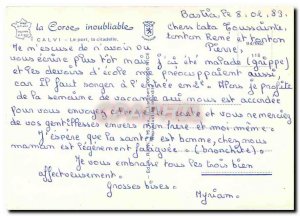 La Corse inoubliable
CALVI - Le port, la citadelle.
Bastia le 8.02.83.
chers tata Toussainte,
tonton René et tonton
Pierre,
Je m'excuse de n'avoir pu
vous écrire plus tôt mais j'ai été malade (grippe)
et les devoirs d'école me préoccupaient aussi,
car il faut songer à l'entrée en 6e. Mais je profite
de la semaine de vacances qui nous est accordée
pour vous envoyer cette carte et vous remercier
de vos gentillesses envers mon frère et moi-même.
J'espère que la santé est bonne, chez nous
maman est légèrement fatiguée (bronchite).
Je vous embrasse tous les trois bien
affectueusement.
Grosses bises.
Myriam.